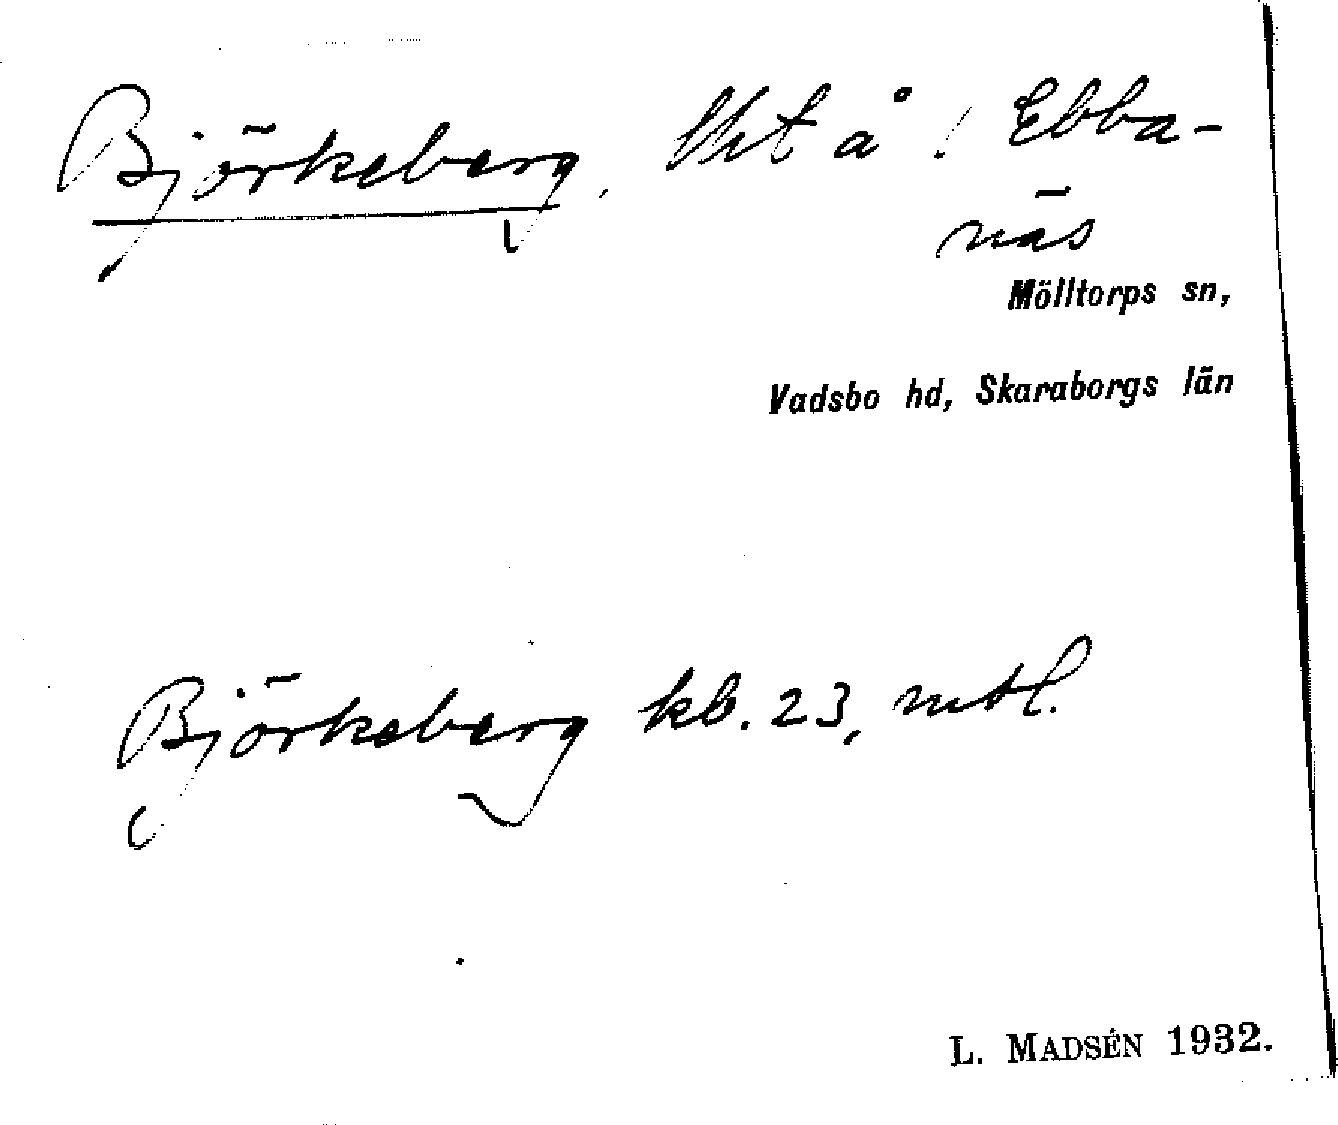 Björkeberg, lht å ! Ebba-
näs
Mölltorps sn,
Vadsbo hd, Skaraborgs län
Björkeberg kb. 23, mtl.
L. MADSÉN 1932.